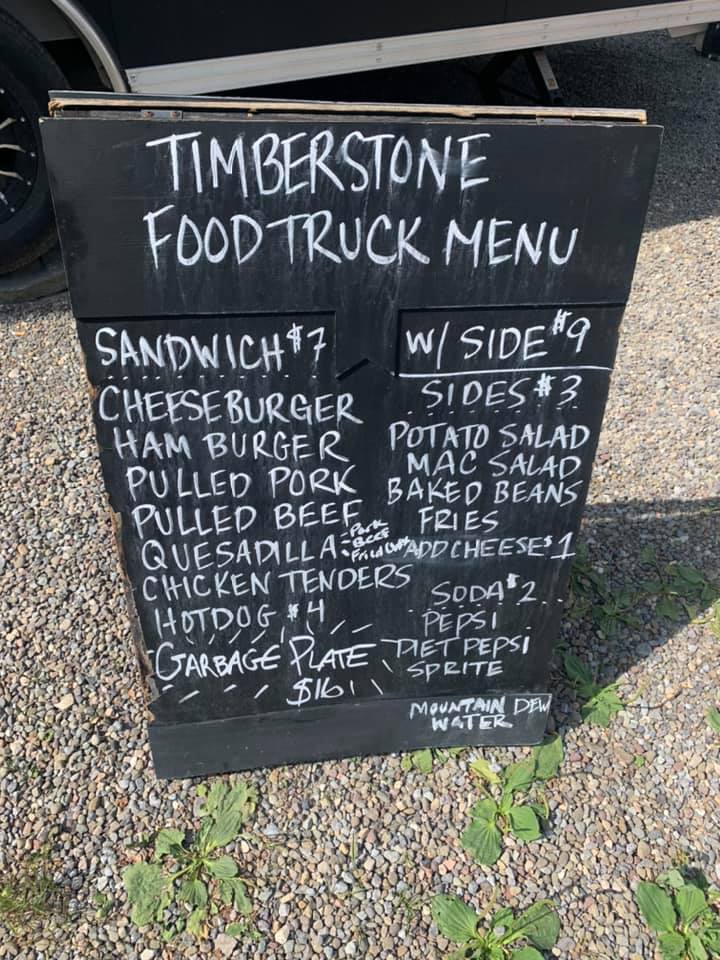 TIMBERSTONE
FOOD TRUCK MENU
SANDWICH $7
CHEESEBURGER
HAM BURGER
PULLED PORK
PULLED BEEF
QUESADILLA - Pork
- BEEF
- Fried
CHICKEN TENDERS
HOTDOG $4
GARBAGE PLATE
$16
W/ SIDE $9
SIDES $3
POTATO SALAD
MAC SALAD
BAKED BEANS
FRIES
ADD CHEESE $1
SODA $2
PEPSI
DIET PEPSI
SPRITE
MOUNTAIN DEW
WATER